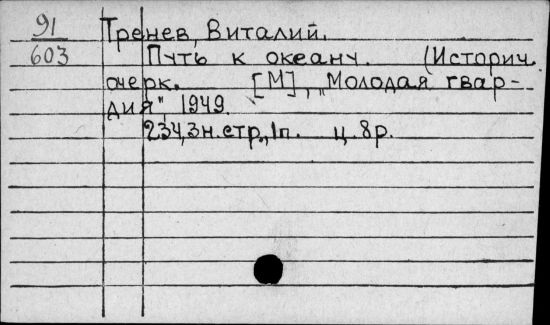 91 Тренев, Виталий.
603 Путь к океану. (Историч.
очерк. [М], „Молодая гвар-
дия", 1949.
234,3н.стр., 1п. ц. 8р.